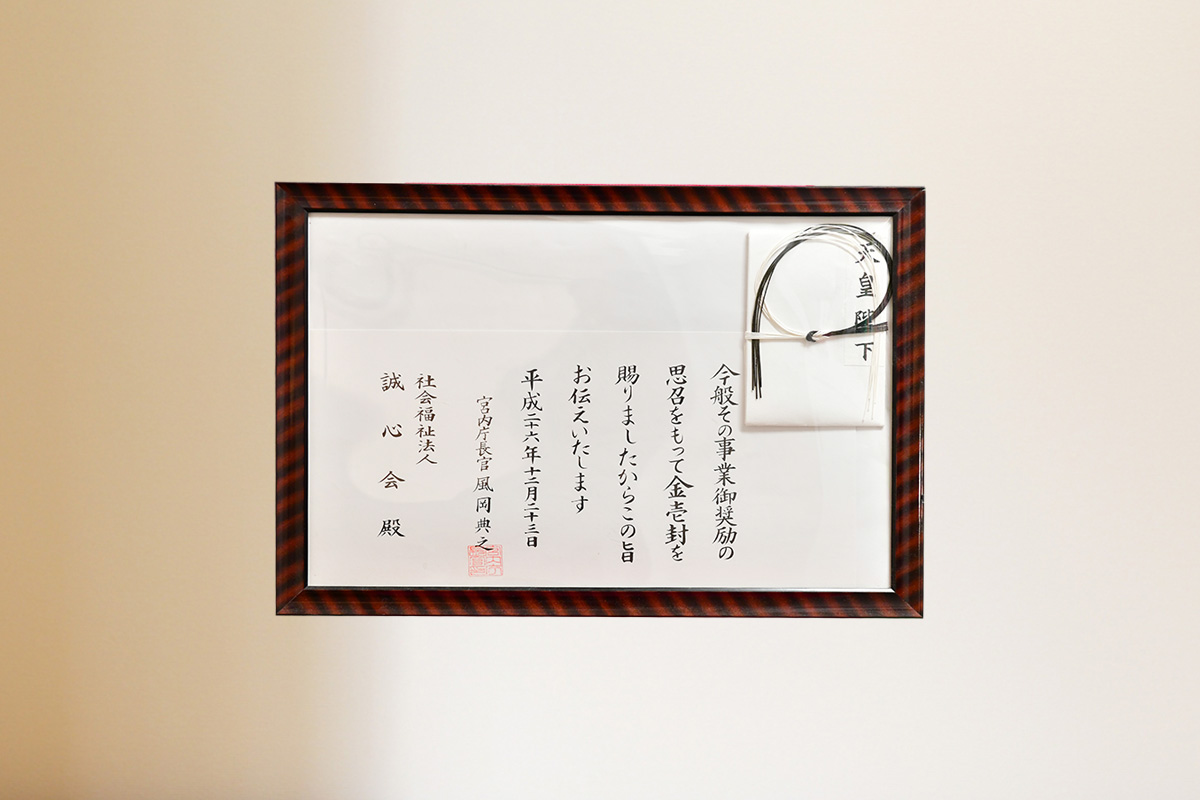 天皇陛下
今般その事業御奨励の
思召をもって金壱封を
賜りましたからこの旨
お伝えいたします
平成二十六年十二月二十三日
宮内庁長官 風岡典之
社会福祉法人
誠心会殿